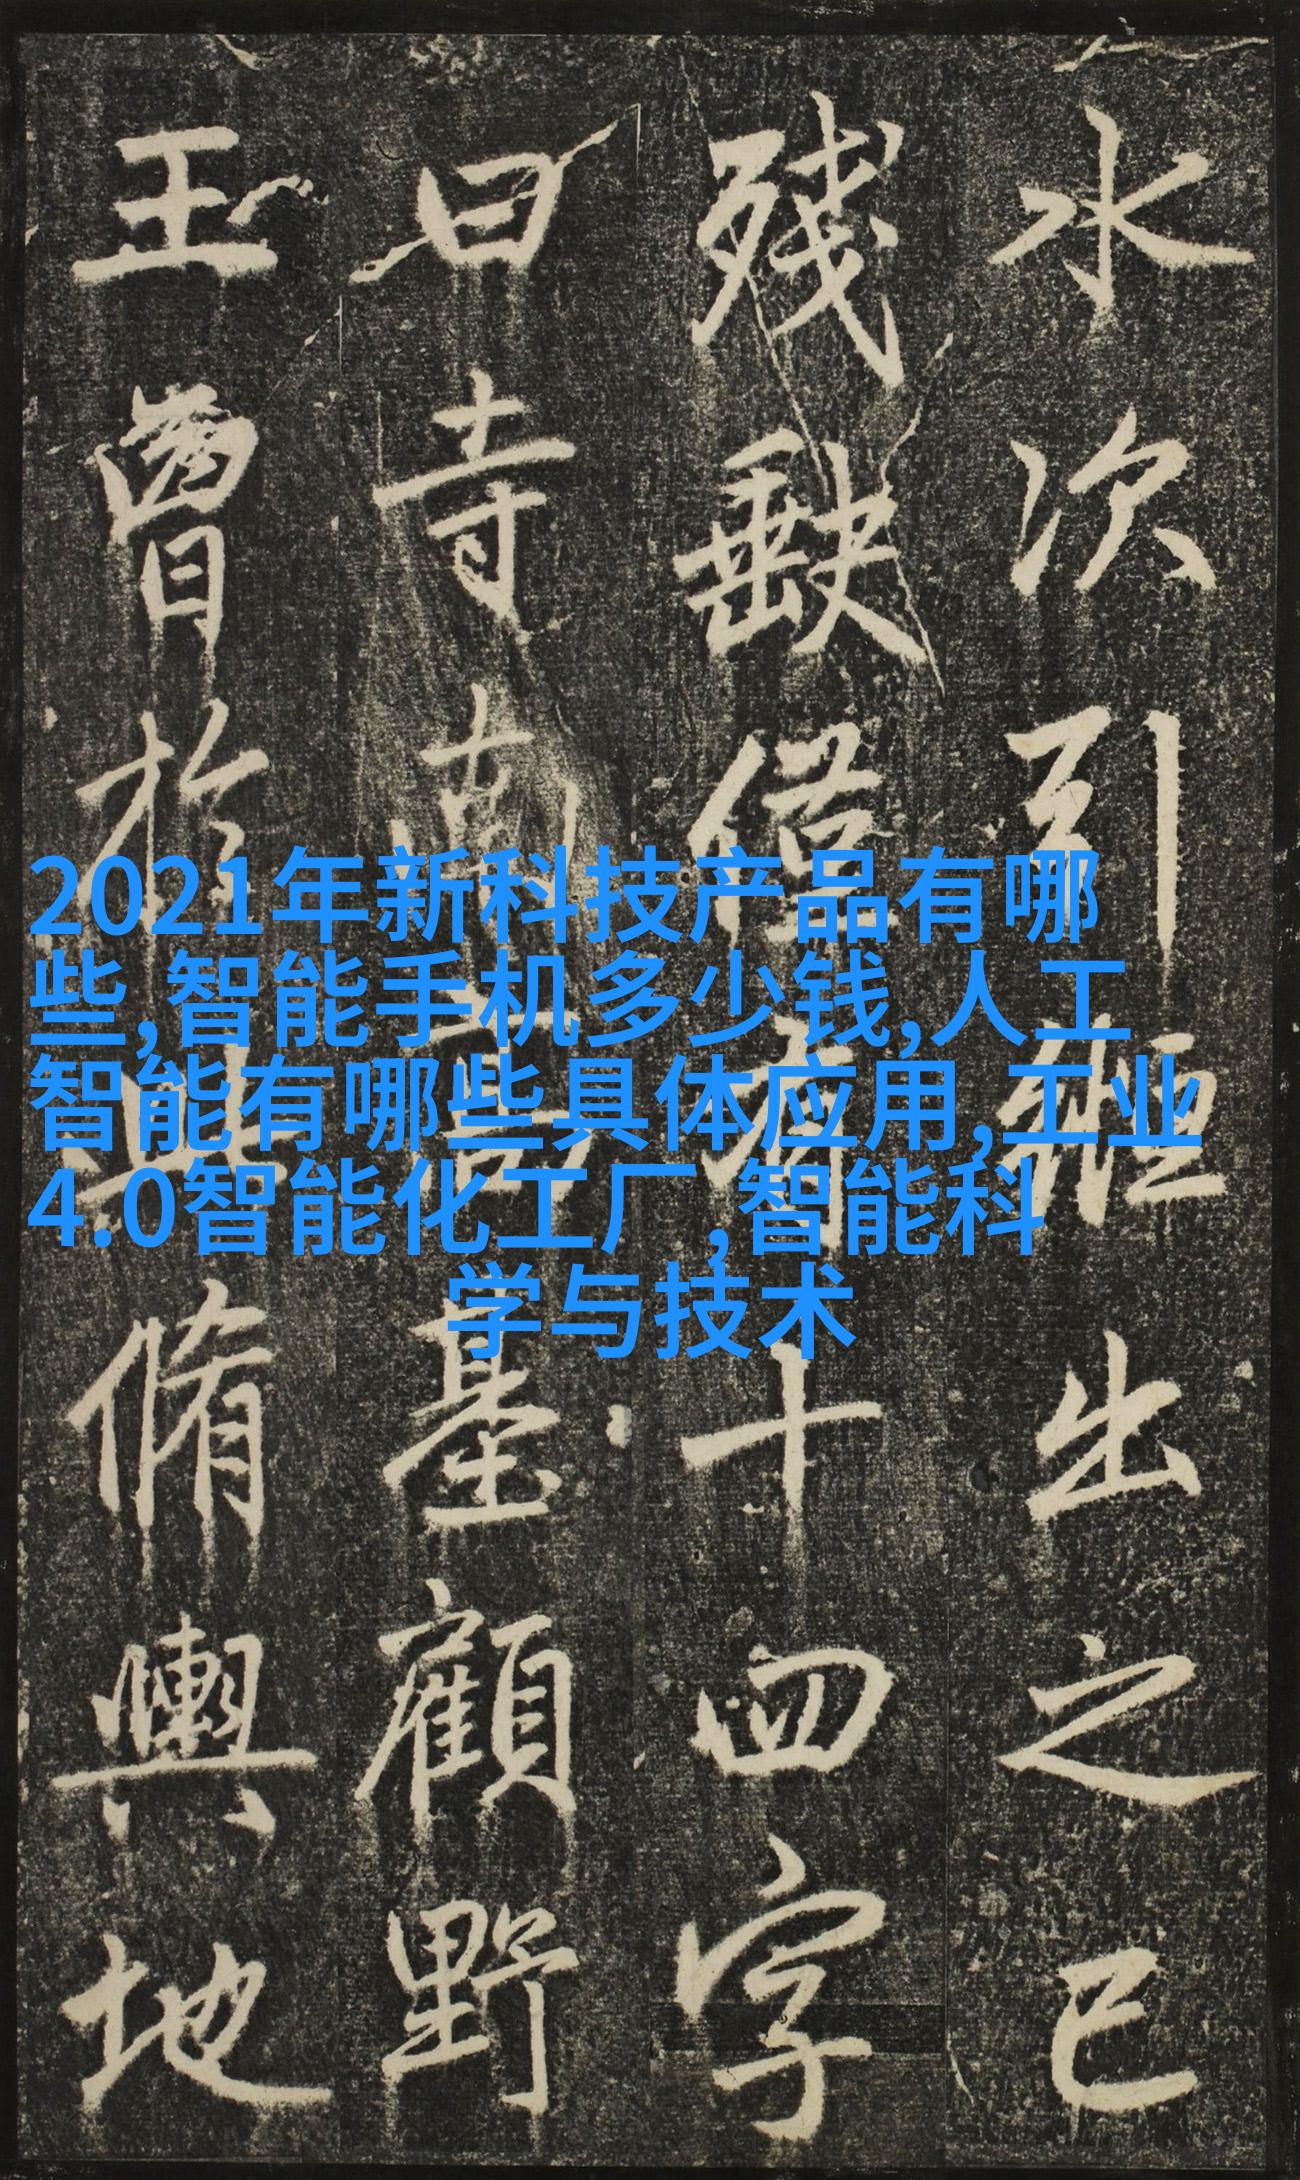 水次引縆出之已
殘缺僅有十四字
曰寺南高基顧野
王曾於此脩輿地
2021年新科技产品有哪
些,智能手机多少钱,人工
智能有哪些具体应用,工业
4.0智能化工厂,智能科
学与技术